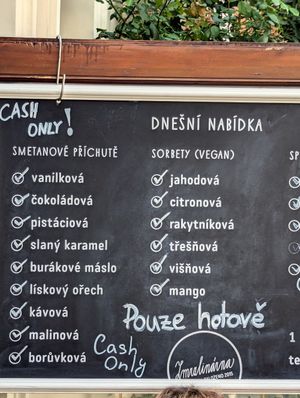 CASH
ONLY!
DNEŠNÍ NABÍDKA
SMETANOVÉ PŘÍCHUTĚ
vanilková
čokoládová
pistáciová
slaný karamel
burákové máslo
lískový ořech
kávová
malinová
borůvková
SORBETY (VEGAN)
jahodová
citronová
rakytníková
třešňová
višňová
mango
Pouze hotově
Cash
Only
Zmrzlinárna
ZALOŽENO 2015
SP
1
te